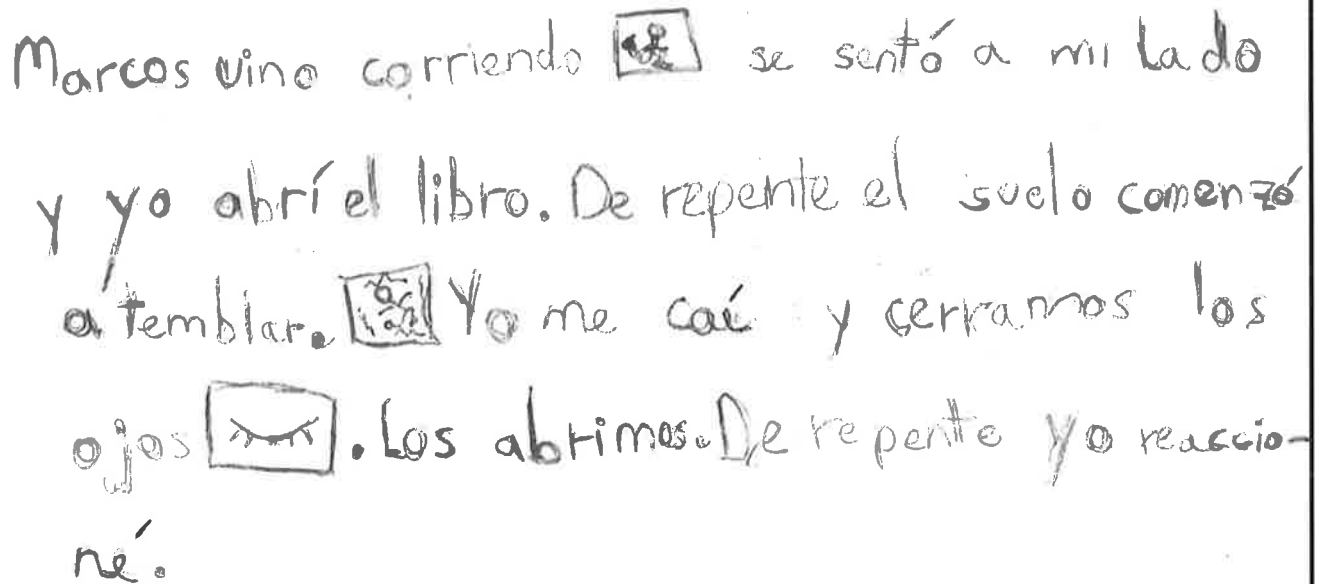 Marcos vino corriendo se sentó a mi lado
y yo abrí el libro. De repente el suelo comenzó
a temblar. Yo me caí y cerramos los
ojos . Los abrimos. De repente yo reaccio-
né.